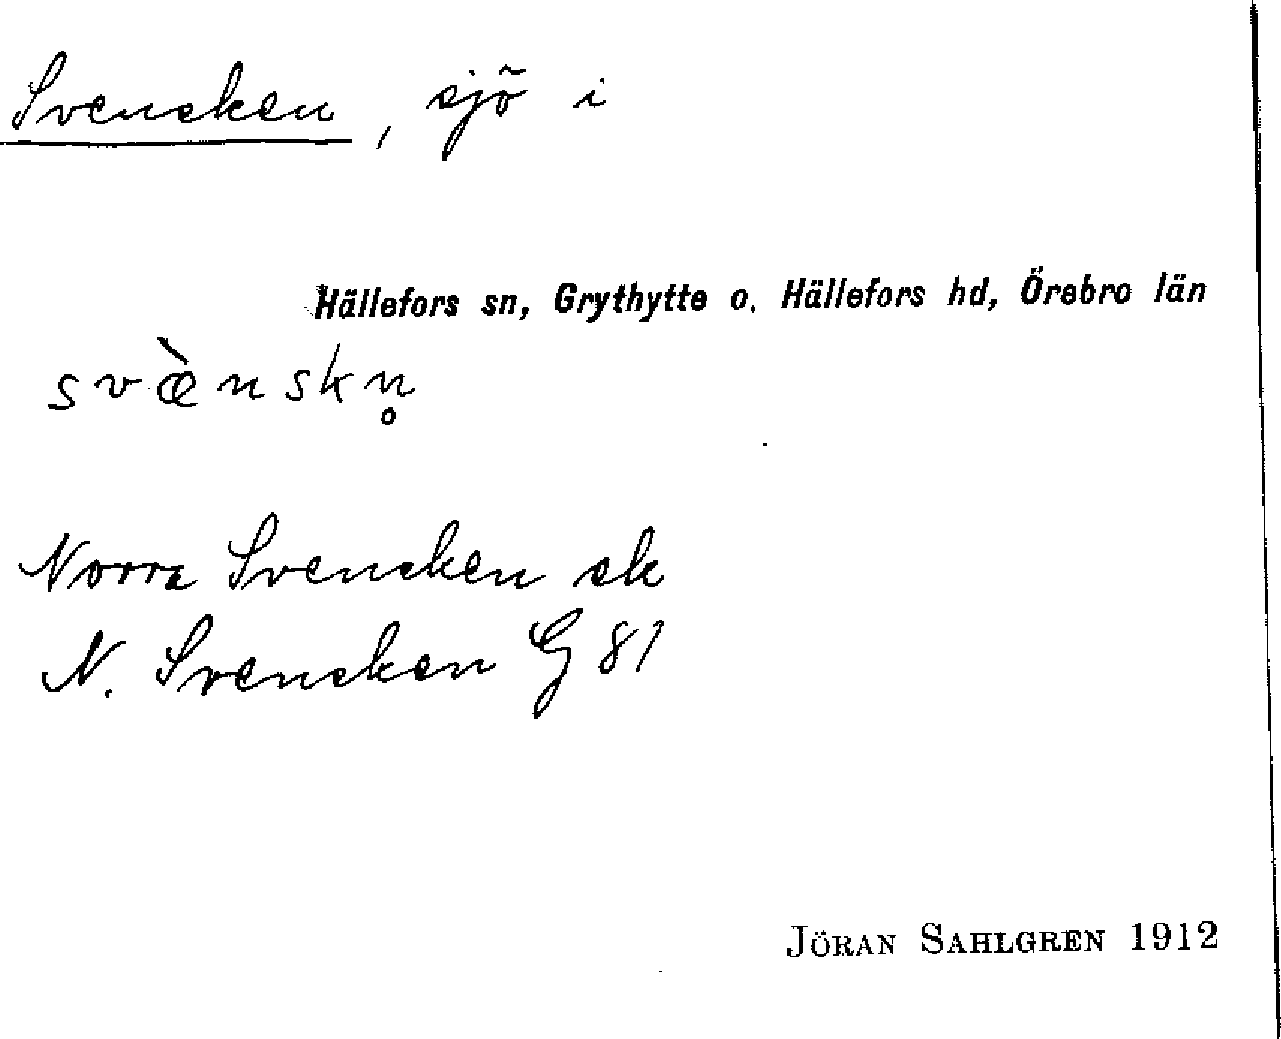 Svensken, sjö i
Hällefors sn, Grythytte o. Hällefors hd, Örebro län
svæ̀nskn̥
Norra Svensken sk
N. Svensken G 81
JÖRAN SAHLGREN 1912